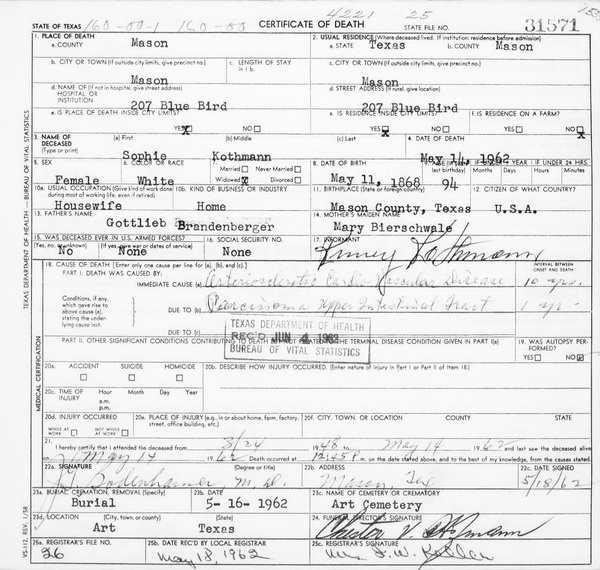 4221 25
STATE OF TEXAS 160-00-1 160-00 CERTIFICATE OF DEATH STATE FILE NO. 31571
1. PLACE OF DEATH
a. COUNTY Mason
2. USUAL RESIDENCE (Where deceased lived. If institution: residence before admission)
a. STATE Texas b. COUNTY Mason
b. CITY OR TOWN (If outside city limits, give precinct no.) c. LENGTH OF STAY in 1 b.
Mason
c. CITY OR TOWN (If outside city limits, give precinct no.)
Mason
d. NAME OF (If not in hospital, give street address) HOSPITAL OR INSTITUTION
207 Blue Bird
d. STREET ADDRESS (If rural, give location)
207 Blue Bird
e. IS PLACE OF DEATH INSIDE CITY LIMITS?
YES X NO
e. IS RESIDENCE INSIDE CITY LIMITS?
YES X NO
f. IS RESIDENCE ON A FARM?
YES NO X
3. NAME OF DECEASED (Type or print) (a) First (b) Middle (c) Last
Sophie Kothmann
4. DATE OF DEATH
May 14, 1962
5. SEX
Female
6. COLOR OR RACE
White
7. Married Never Married
Widowed X Divorced
8. DATE OF BIRTH
May 11, 1868
last birthday) 94
YEAR IF UNDER 24 HRS.
Months Days Hours Minutes
10a. USUAL OCCUPATION (Give kind of work done during most of working life, even if retired)
Housewife
10b. KIND OF BUSINESS OR INDUSTRY
Home
11. BIRTHPLACE (State or foreign country)
Mason County, Texas
12. CITIZEN OF WHAT COUNTRY?
U.S.A.
13. FATHER'S NAME
Gottlieb Brandenberger
14. MOTHER'S MAIDEN NAME
Mary Bierschwale
15. WAS DECEASED EVER IN U.S. ARMED FORCES?
(Yes, no, or unknown) (If yes, give war or dates of service)
No None
16. SOCIAL SECURITY NO.
None
17. INFORMANT
Kothmann
18. CAUSE OF DEATH [Enter only one cause per line for (a), (b), and (c).]
INTERVAL BETWEEN ONSET AND DEATH
PART I. DEATH WAS CAUSED BY:
IMMEDIATE CAUSE (a) Arteriosclerotic Cardio Vascular Disease 10 yrs.
Conditions, if any, which gave rise to above cause (a), stating the underlying cause last.
DUE TO (b) Carcinoma Upper Intestinal Tract 1 yr.
DUE TO (c)
TEXAS DEPARTMENT OF HEALTH
REC'D JUN 4 1962
BUREAU OF VITAL STATISTICS
PART II. OTHER SIGNIFICANT CONDITIONS CONTRIBUTING TO DEATH BUT NOT RELATED TO THE TERMINAL DISEASE CONDITION GIVEN IN PART I(a)
19. WAS AUTOPSY PERFORMED?
YES NO
20a. ACCIDENT SUICIDE HOMICIDE
20b. DESCRIBE HOW INJURY OCCURRED. (Enter nature of injury in Part I or Part II of Item 18.)
20c. TIME OF INJURY Hour Month Day Year
a.m.
p.m.
20d. INJURY OCCURRED
WHILE AT WORK NOT WHILE AT WORK
20e. PLACE OF INJURY (e.g., in or about home, farm, factory, street, office building, etc.)
20f. CITY, TOWN, OR LOCATION COUNTY STATE
21. I hereby certify that I attended the deceased from 3/24 1948 to May 14 1962 and last saw the deceased alive
on May 14 1962 Death occurred at 12:45 P.m. on the date stated above, and to the best of my knowledge, from the causes stated.
22a. SIGNATURE (Degree or title)
Bodenhamer M.D.
22b. ADDRESS
Mason, Tex
22c. DATE SIGNED
5/18/62
23a. BURIAL, CREMATION, REMOVAL (Specify)
Burial
23b. DATE
5-16-1962
23c. NAME OF CEMETERY OR CREMATORY
Art Cemetery
23d. LOCATION (City, town, or county) (State)
Art Texas
24. FUNERAL DIRECTOR'S SIGNATURE
Chester V.
25a. REGISTRAR'S FILE NO.
26
25b. DATE REC'D BY LOCAL REGISTRAR
May 18, 1962
25c. REGISTRAR'S SIGNATURE
Mrs. J. W.
TEXAS DEPARTMENT OF HEALTH — BUREAU OF VITAL STATISTICS
MEDICAL CERTIFICATION
VS-112, REV. 1/58